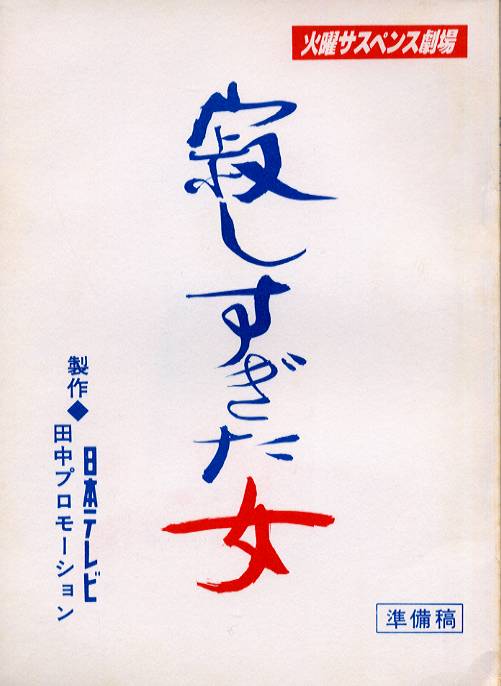 火曜サスペンス劇場
寂しすぎた女
製作◆
日本テレビ
田中プロモーション
準備稿